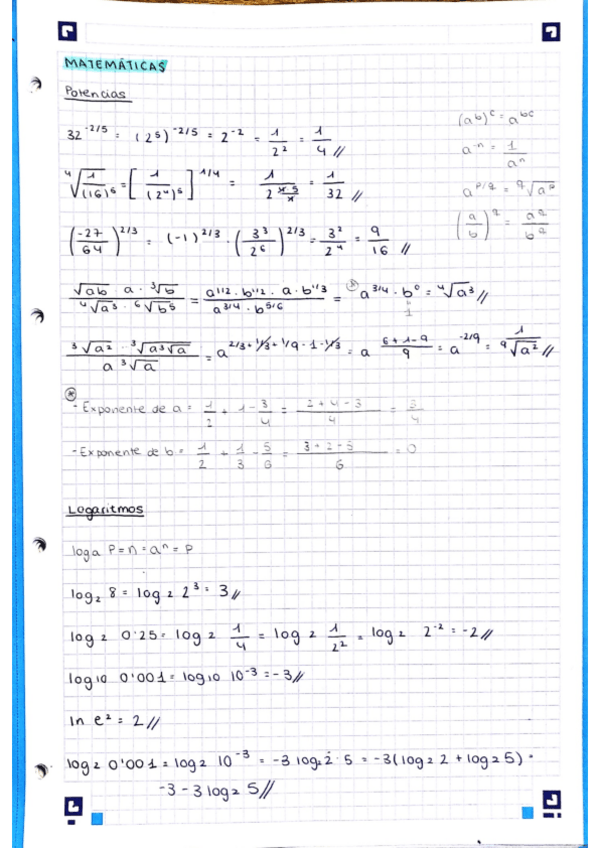 MATEMÁTICAS
Potencias
(ab)^c = a^bc
32^-2/5 = (2^5)^-2/5 = 2^-2 = 1/2^2 = 1/4 //
a^-n = 1/a^n
⁴√(1/(16)^5) = [1/(2^4)^5]^1/4 = 1/2^(4·5/4) = 1/32 //
a^p/q = q√a^p
(a/b)^q = a^q/b^q
(-27/64)^2/3 = (-1)^2/3 · (3^3/2^6)^2/3 = 3^2/2^4 = 9/16 //
√ab · a · ³√b / ⁴√a^3 · ⁶√b^5 = a^1/2 · b^1/2 · a · b^1/3 / a^3/4 · b^5/6 = a^3/4 · b^0 = ⁴√a^3 //
1
³√a^2 · ³√a^3√a / a ³√a = a^2/3+1/3+1/9-1-1/3 = a^(6+1-9)/9 = a^-2/9 = 1/⁹√a^2 //
- Exponente de a = 1/2 + 1 - 3/4 = 2+4-3/4 = 3/4
- Exponente de b = 1/2 + 1/3 - 5/6 = 3+2-5/6 = 0
Logaritmos
loga P = n = a^n = P
log2 8 = log2 2^3 = 3 //
log2 0'25 = log2 1/4 = log2 1/2^2 = log2 2^-2 = -2 //
log10 0'001 = log10 10^-3 = -3 //
ln e^2 = 2 //
log2 0'001 = log2 10^-3 = -3 log2 2·5 = -3(log2 2 + log2 5) =
-3 - 3 log2 5 //